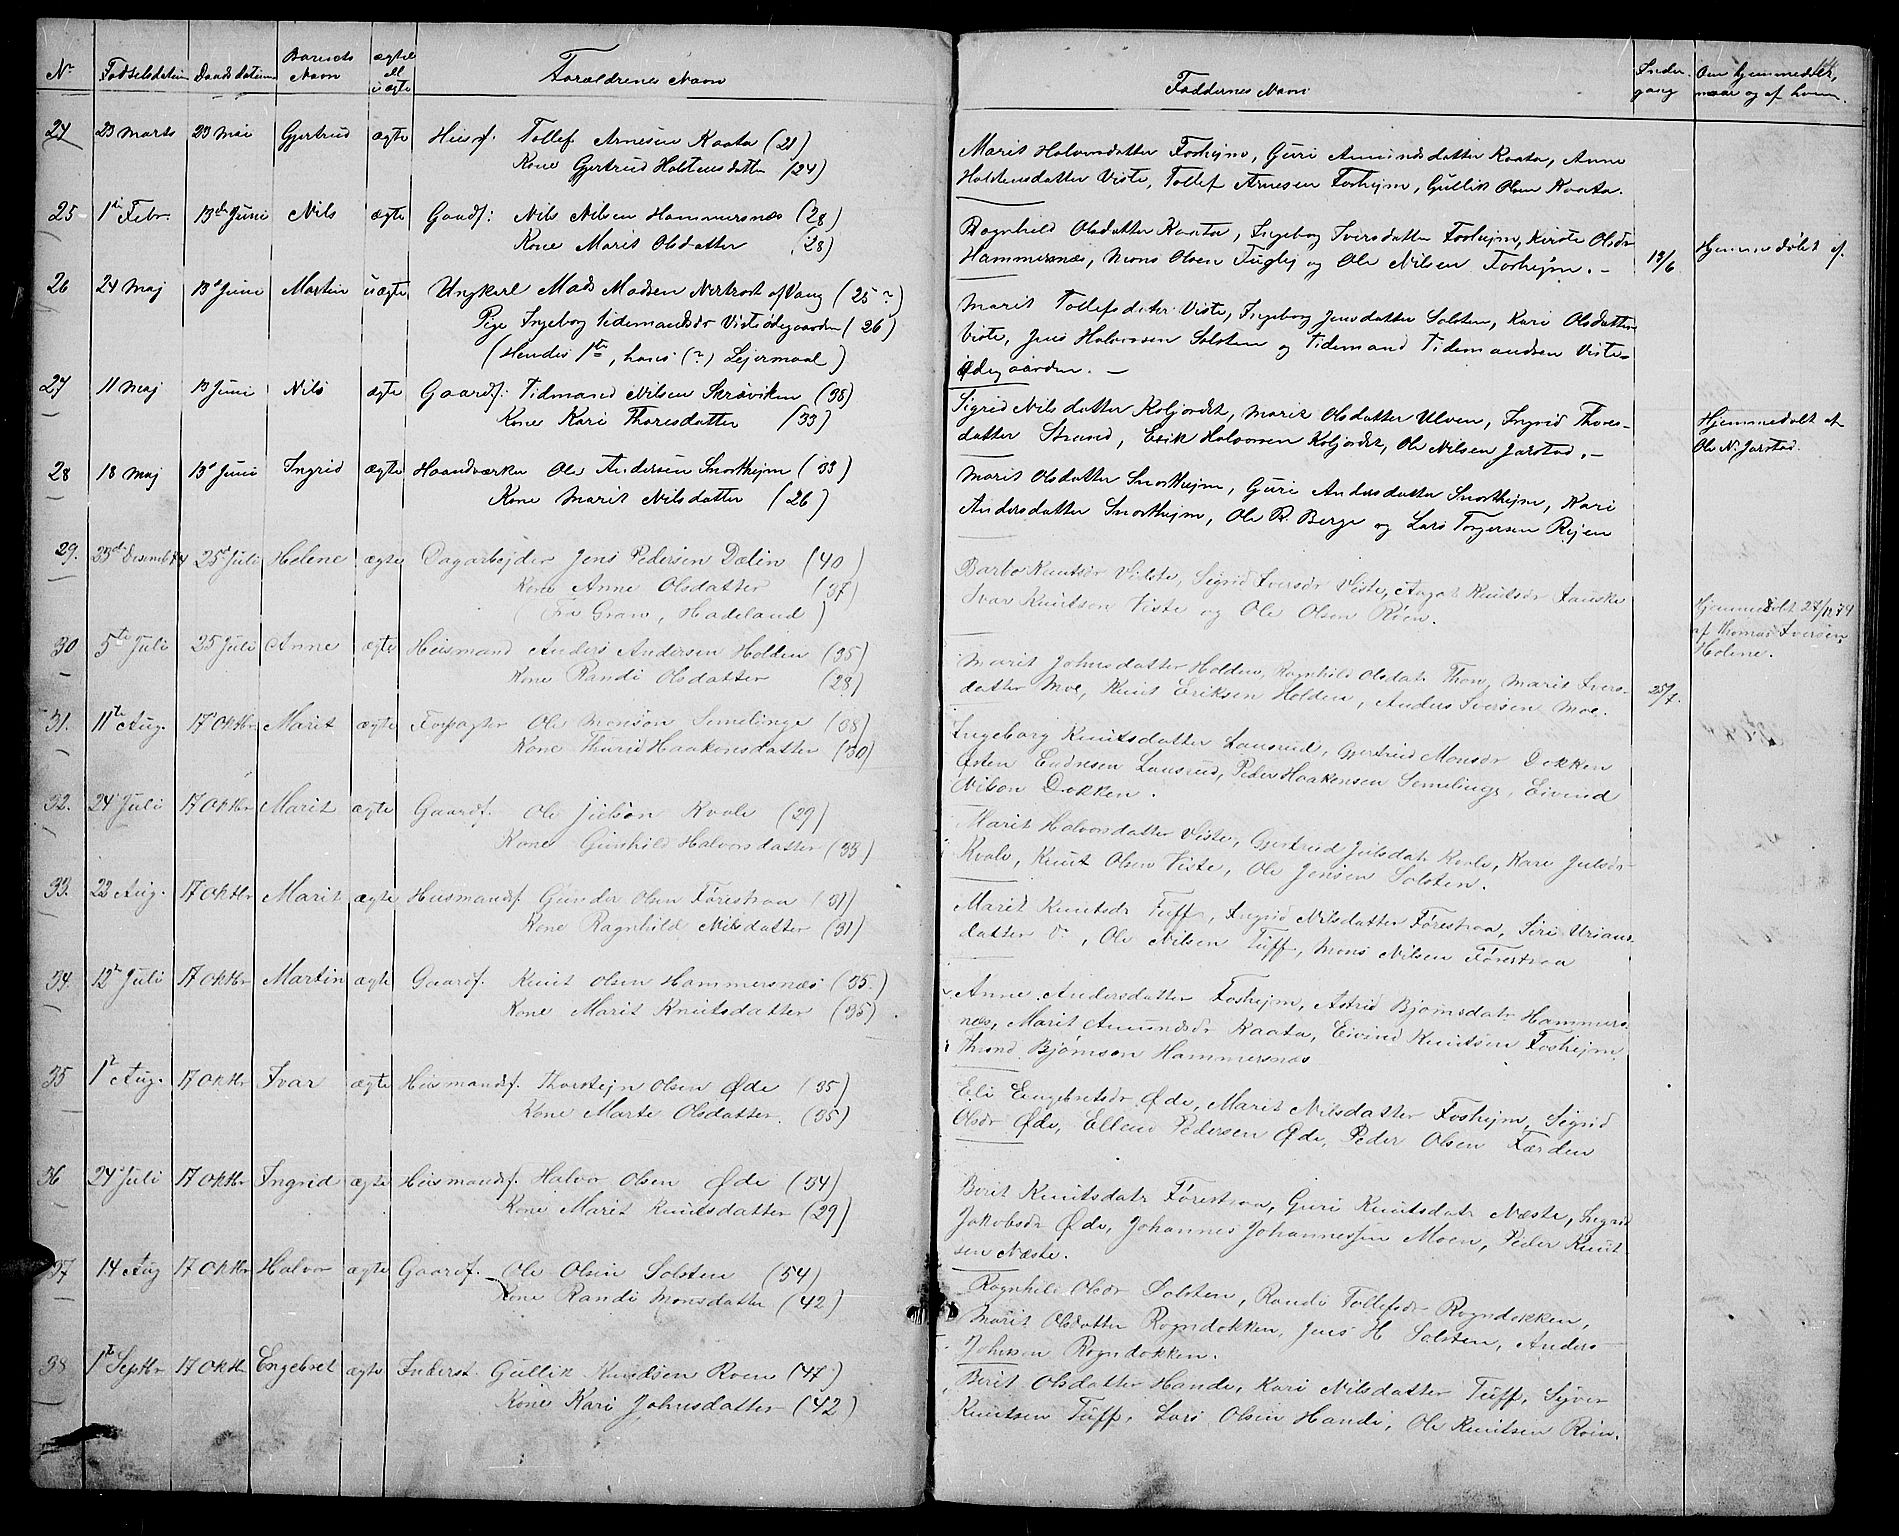 Nr Fødselsdatum Daabsdatum Barnets Navn ægte ell uægte Forældrenes Navn
24 23 Marts 23 Mai Gjertrud ægte Husf. Tollef Arnesen Kaata (21)
Kone Gjertrud Holstensdatter (24)
25 1ste Febr. 13de Juni Nils ægte Gaardf: Nils Nilsen Hammersnæs (28)
Kone Marit Olsdatter (28)
26 24 Maj 13d Juni Martin uægte Ungkarl Mads Madsen Nertrost af Vang (25?)
Pige Ingeborg Tidemandsdr Visteødegaarden (26)
(Hendes 1ste, hans (?) Lejermaal)
27 11 Maj 13 Juni Nils ægte Gaardf: Tidmand Nilsen Skrøviken (38)
Kone Kari Thoresdatter (33)
28 18 Maj 13d Juni Ingrid ægte Haandværker Ole Andersen Snorthejm (33)
Kone Marit Nilsdatter (26)
29. 23d Desemb 74 25d Juli Helene ægte Dagarbejder Jens Pedersen Dælin (40)
Kone Anne Olsdatter (37)
(Fra Gran, Hadeland)
30 5te Juli 25 Juli Anne ægte Husmand Anders Andersen Holden (35)
Kone Randi Olsdatter (28)
31. 11te Aug. 17d Oktbr Marit ægte Forpagter Ole Monsen Semelinge (38)
Kone Thurid Haakonsdatter (30)
32. 24d Juli 17 Oktbr Marit ægte Gaardf. Ole Julsøn Kvale (29)
Kone Gunhild Halvorsdatter (33)
33. 22 Aug. 17 Oktbr Marit ægte Husmandsf. Gunder Olsen Førestraa (31)
Kone Ragnhild Nilsdatter (31)
34. 12te Juli 17 Oktbr Martin ægte Gaardf. Knut Olsen Hammersnæs (35.)
Kone Marit Knutsdatter (35)
35 1te Aug. 17 Oktbr Ivar ægte Husmandsf. Thorstejn Olsen Øde (35)
Kone Marte Olsdatter. (35)
36 24d Juli 17 Oktbr Ingrid ægte Husmandsf. Halvor Olsen Øde (34)
Kone Marit Knutsdatter (29)
37 14 Aug 17 Oktbr Halvor ægte Gaardf. Ole Olsen Solsten (54)
Kone Randi Monsdatter (42)
38 1te Septbr 17 Oktbr Engebret ægte Inderst. Gullik Knudsen Roen (47)
Kone Kari Johnsdatter (42)
Faddernes Navn Indgang Om hjemmedøbt, naar og af hvem.
Marit Halvorsdatter Foshejm, Guri Amundsdatter Kaata, Anne
Holstensdatter Viste, Tollef Arnesen Foshejm, Gullik Olsen Kaata.
Ragnhild Olsdatter Kaata, Ingeborg Iversdatter Foshejm, Kirste Olsdr
Hammersnæs, Mons Olsen Fuglej og Ole Nilsen Foshejm. - 13/6 Hjemmedøbt af.
Marit Tollefsdatter Viste, Ingeborg Jensdatter Solsten, Kari Olsdatter
Viste, Jens Halvorsen Solsten og Tidemand Tidemandsen Viste-
ødegaarden. -
Sigrid Nilsdatter Koljordet, Marit Olsdatter Ulven, Ingrid Thores-
datter Strand, Erik Halvorsen Koljordet, Ole Nilsen Jarstad. - Hjemmedøbt af
Ole N. Jarstad.
Marit Olsdatter Snorthejm, Guri Andersdatter Snorthejm, Kari
Andersdatter Snorthejm, Ole R. Berge og Lars Torgersen Rejen
Barbo Knutsdr Viste, Sigrid Iversdr Viste, Aagot Knutsdr Fauske
Ivar Knutsen Viste og Ole Olsen Røen.
Hjemmedøbt 27/12 74
af Thomas Iversen
Helene.
Marit Johnsdatter Holden, Ragnhild Olsdatr Thon, Marit Ivers-
datter Moe, Knut Eriksen Holden, Anders Iversen Moe. 25/7.
Ingeborg Knutsdatter Lansrud, Gjertrud Monsdr Dokken
Østen Endresen Lansrud, Peder Haakensen Semelinge, Eivind
Nilson Dokken.
Marit Halvorsdatter Viste, Gjertrud Julsdatr Kvale, Kari Julsdr
Kvale, Knut Olsen Viste, Ole Jensen Solsten.
Marit Knutsdr Tuff, Ingrid Nilsdatter Førestraa, Siri Urians-
datter do, Ole Nilsen Tuff, Mons Nilsen Førestraa
Anne Andersdatter Foshejm, Astrid Bjørnsdatr Hammers-
næs, Marit Amundsdr Kaata, Eivind Knutsen Foshejm
Thrond Bjørnson Hammersnæs
Eli Engebretsdr Øde, Marit Nilsdatter Foshejm, Sigrid
Olsdr Øde, Ellend Pedersen Øde, Peder Olsen Færden
Berit Knutsdatr Førestraa, Guri Knutsdatr Næste, Ingrid
Jakobsdr Øde, Johannes Johannessen Moen, Peder Knut-
sen Næste.
Ragnhild Olsdr Solsten, Randi Tollefsdr Rogndokken,
Marit Olsdatter Rogndokken, Jens H Solsten, Anders
Johnsen Rogndokken.
Berit Olsdatter Hande, Kari Nilsdatter Tuff, Syver
Knutsen Tuff, Lars Olsen Hande, Ole Knutsen Roen.